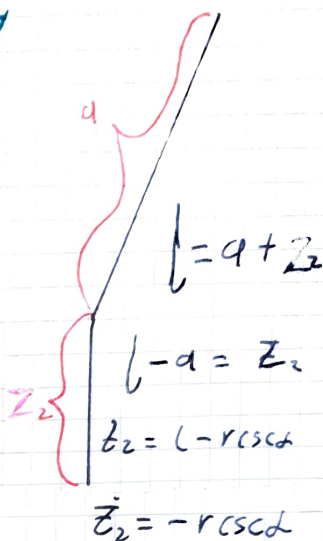 a
l = a + z₂
l - a = z₂
z₂
z₂ = l - r csc α
ż₂ = - r csc α